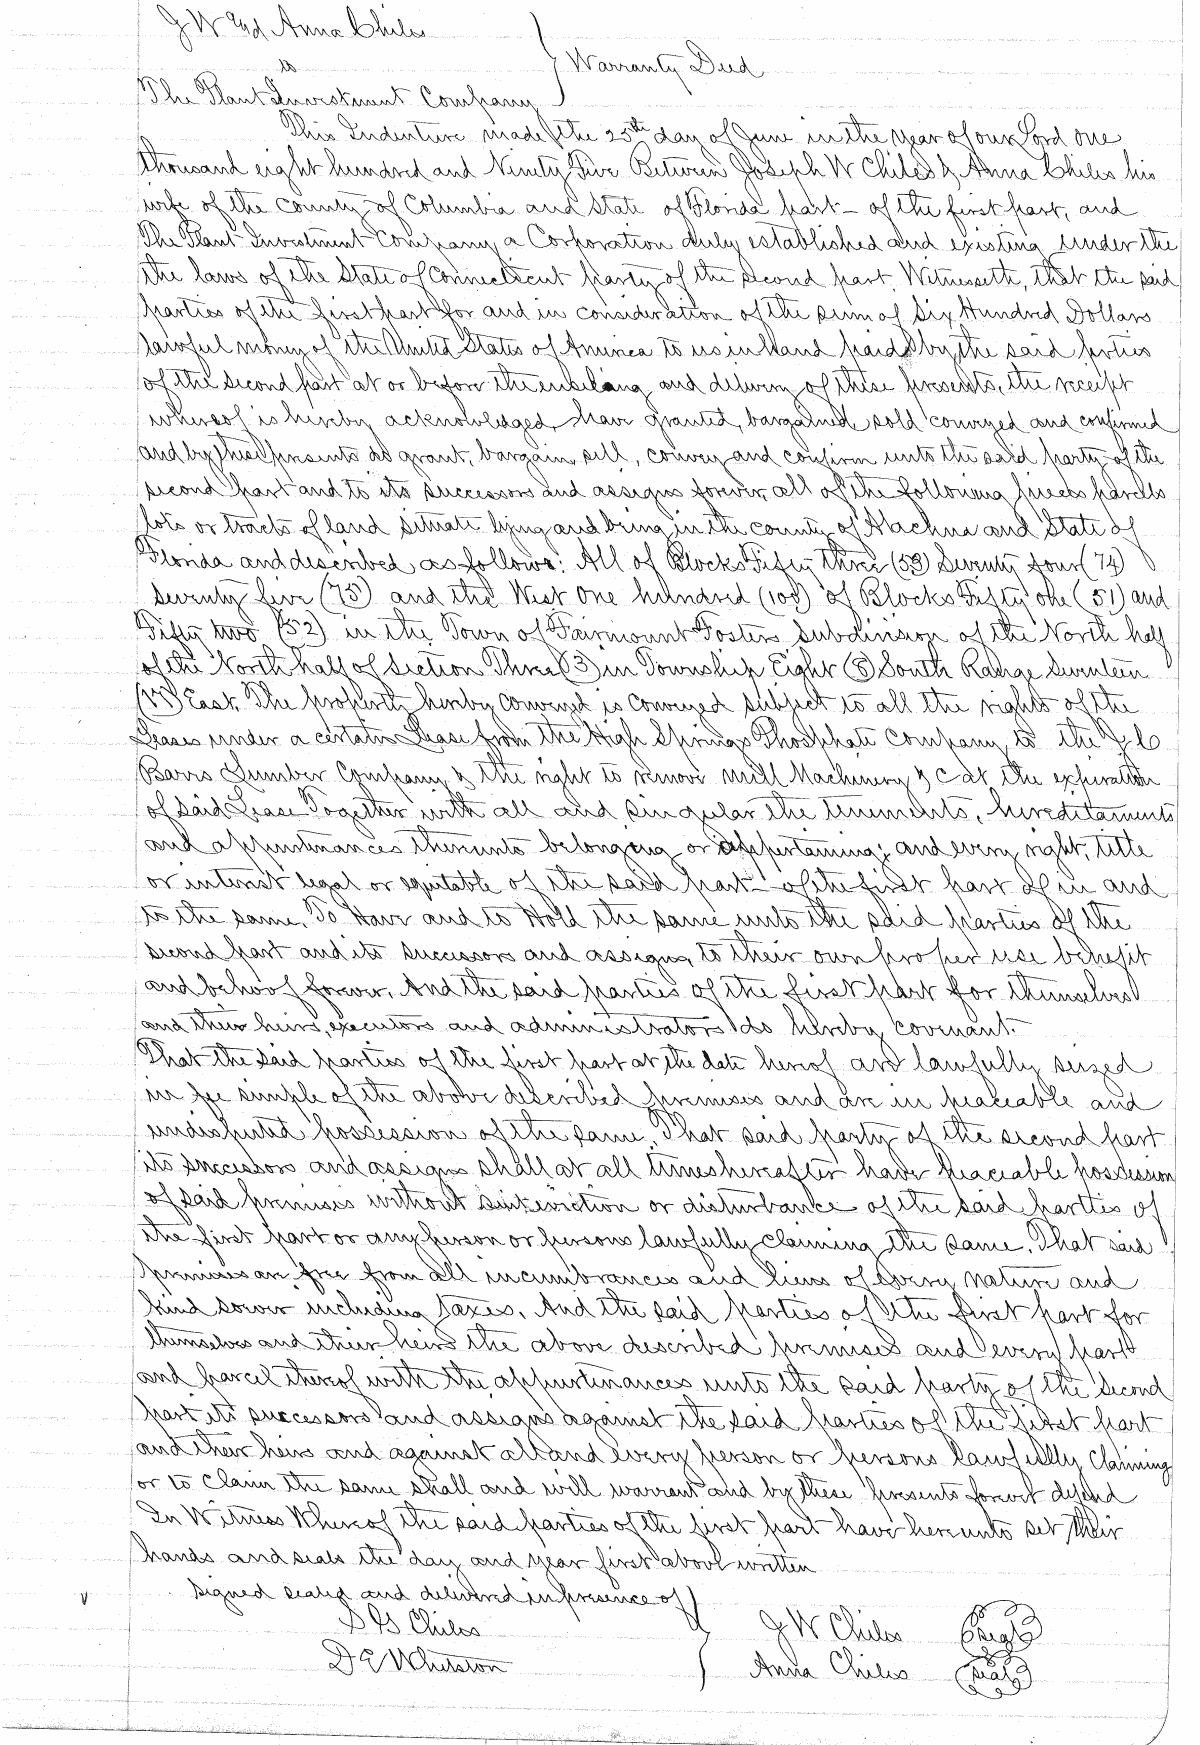 J W and Anna Chiles
to
Warranty Deed
The Plant Investment Company
This Indenture made the 25th day of June in the year of our Lord one
thousand eight hundred and Ninety Five Between Joseph W Chiles & Anna Chiles his
wife of the County of Columbia and State of Florida part- of the first part, and
The Plant Investment Company a Corporation duly established and existing under the
the laws of the State of Connecticut party of the second part, Witnesseth, that the said
parties of the first part for and in consideration of the sum of Six Hundred Dollars
lawful money of the United States of America to us in hand paid by the said parties
of the second part at or before the ensealing and delivery of these presents, the receipt
whereof is hereby acknowledged have granted, bargained, sold conveyed and confirmed
and by these presents do grant, bargain, sell, convey and confirm unto the said party of the
second part and to its successors and assigns forever, all of the following pieces parcells
lots or tracts of land situate lying and being in the county of Alachua and State of
Florida and described as follows: All of Blocks Fifty three (53) Seventy four (74)
seventy five (75) and the West One hundred (100) of Blocks Fifty one (51) and
Fifty two (52) in the Town of Fairmount Fosters Subdivision of the North half
of the North half of Section Three (3) in Township Eight (8) South Range Seventeen
(17) East. The property hereby conveyed is conveyed subject to all the rights of the
Leases under a certain Lease from the High Springs Phosphate Company to the J C
Barrs Lumber Company & the right to remove mill Machinery & c at the expiration
of said Lease Together with all and singular the tenements, hereditaments
and appurtenances thereunto belonging or appertaining; and every right, title
or interest legal or equitable of the said part- of the first part of in and
to the same. To Have and to Hold the same unto the said parties of the
second part and its successors and assigns, to their own proper use benefit
and behoof forever. And the said parties of the first part for themselves
and their heirs, executors and administrators do hereby covenant.
That the said parties of the first part at the date hereof are lawfully seized
in fee simple of the above described premises and are in peaceable and
undisputed possession of the same. That said party of the second part
its successors and assigns shall at all times hereafter have peaceable possession
of said premises without eviction or disturbance of the said parties of
the first part or any person or persons lawfully claiming the same. That said
premises are free from all incumbrances and liens of every nature and
kind soever including taxes. And the said parties of the first part for
themselves and their heirs the above described premises and every part
and parcel thereof with the appurtenances unto the said party of the second
part its successors and assigns against the said parties of the first part
and their heirs and against all and every person or persons lawfully claiming
or to claim the same shall and will warrant and by these presents forever defend
In Witness Whereof the said parties of the first part have hereunto set their
hands and seals the day and year first above written
Signed sealed and delivered in presence of
S G Chiles J W Chiles (seal)
D E Whetston Anna Chiles (seal)